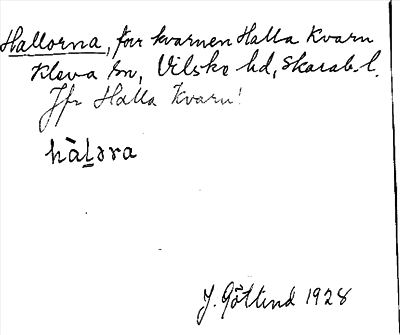 Hallorna, förr kvarnen Halla Kvarn
Kleva sn, Vilske hd, Skarab. l.
Jfr Halla Kvarn!
hàḻəra
J. Götlind 1928